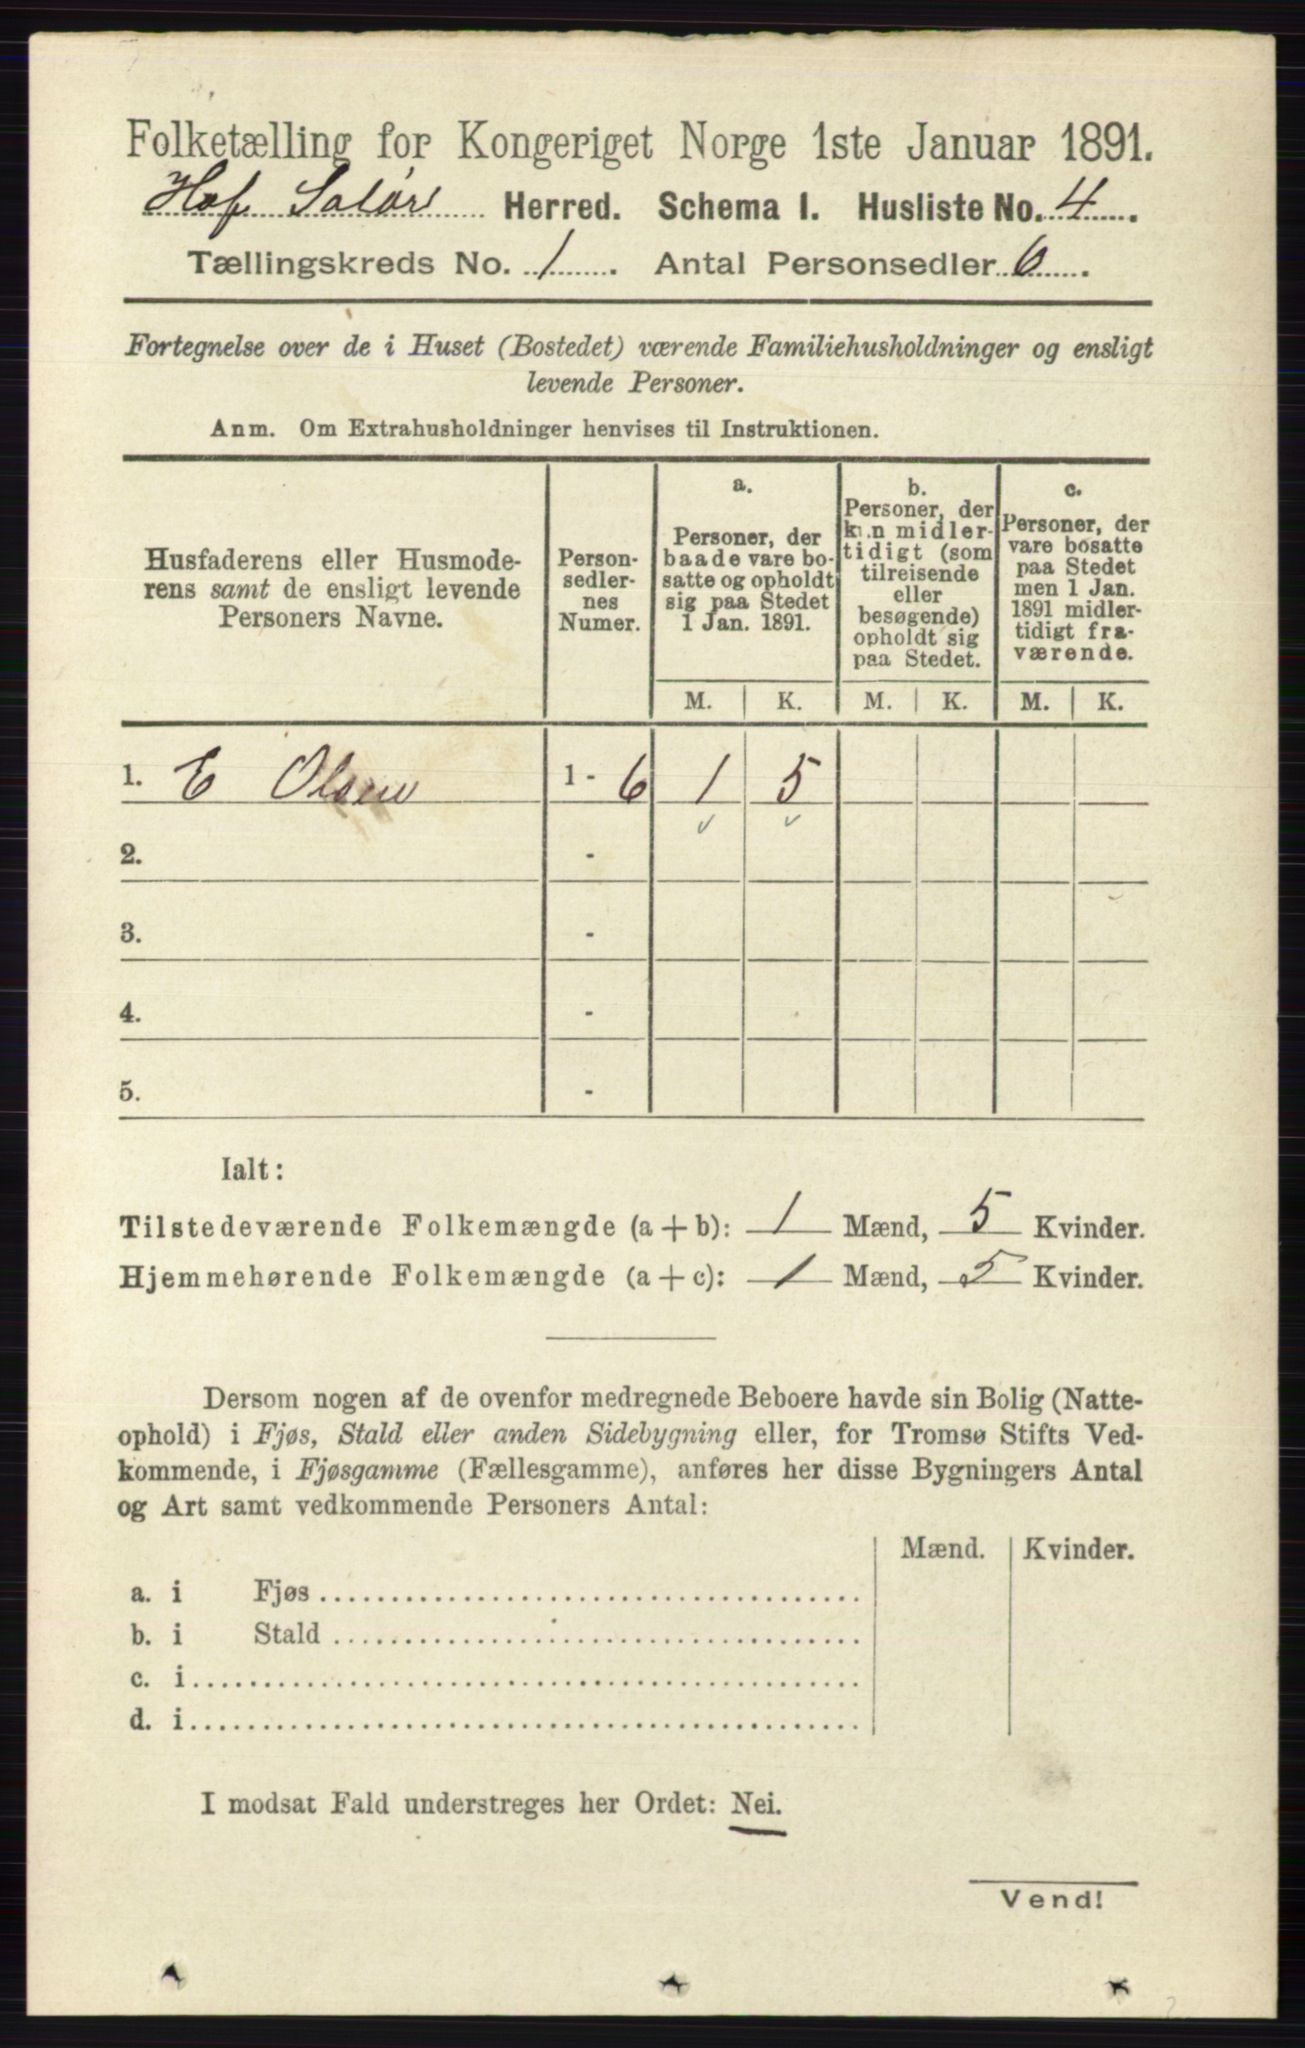 Folketælling for Kongeriget Norge 1ste Januar 1891.
Hof Solør Herred. Schema I. Husliste No. 4.
Tællingskreds No. 1. Antal Personsedler 6.
Fortegnelse over de i Huset (Bostedet) værende Familiehusholdninger og ensligt
levende Personer.
Anm. Om Extrahusholdninger henvises til Instruktionen.
Husfaderens eller Husmode-
rens samt de ensligt levende
Personers Navne.
Person-
sedler-
nes
Numer.
a.
Personer, der
baade vare bo-
satte og opholdt
sig paa Stedet
1 Jan. 1891.
b.
Personer, der
kun midler-
tidigt (som
tilreisende
eller
besøgende)
opholdt sig
paa Stedet.
c.
Personer, der
vare bosatte
paa Stedet
men 1 Jan.
1891 midler-
tidigt fra-
værende.
M. K. M. K. M. K.
1. E Olsen 1 - 6 1 5
2. -
3. -
4. -
5. -
Ialt:
Tilstedeværende Folkemængde (a + b): 1 Mænd, 5 Kvinder.
Hjemmehørende Folkemængde (a + c): 1 Mænd, 5 Kvinder.
Dersom nogen af de ovenfor medregnede Beboere havde sin Bolig (Natte-
ophold) i Fjøs, Stald eller anden Sidebygning eller, for Tromsø Stifts Ved-
kommende, i Fjøsgamme (Fællesgamme), anføres her disse Bygningers Antal
og Art samt vedkommende Personers Antal:
Mænd. Kvinder.
a. i Fjøs
b. i Stald
c. i
d. i
I modsat Fald understreges her Ordet: Nei.
Vend!